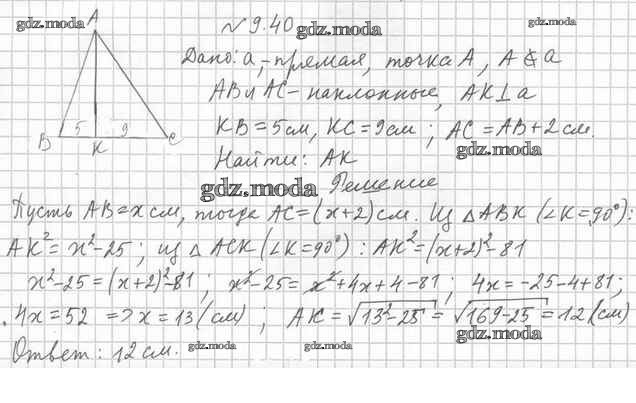 № 9.40
gdz.moda gdz.moda gdz.moda
Дано: a,-прямая, точка A, A ∉ a
AB и AC-наклонные, AK⊥a
KB=5см, KC=9см; AC=AB+2см.
gdz.moda
Найти: AK
gdz.moda Решение
A
5 9
B K C
Пусть AB=x см, тогда AC=(x+2)см. Из △ABK (∠K=90°):
AK²=x²-25; из △ACK(∠K=90°): AK²=(x+2)²-81
x²-25=(x+2)²-81; x²-25=x²+4x+4-81; 4x=-25-4+81;
4x=52 => x=13(см); AK=√13²-25=√169-25=12(см)
Ответ: 12см. gdz.moda gdz.moda gdz.moda